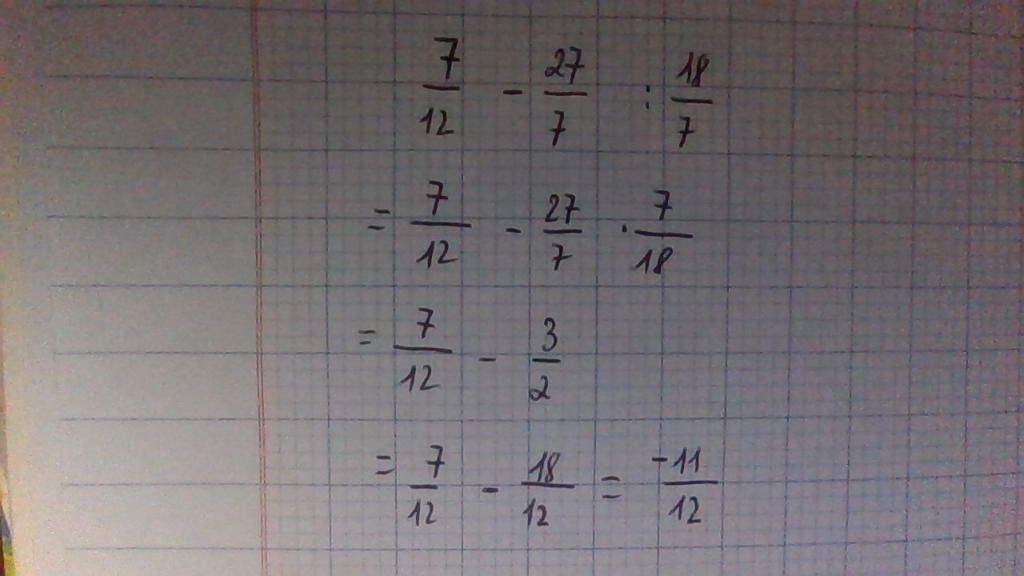 7/12 - 27/7 : 18/7
= 7/12 - 27/7 · 7/18
= 7/12 - 3/2
= 7/12 - 18/12 = -11/12